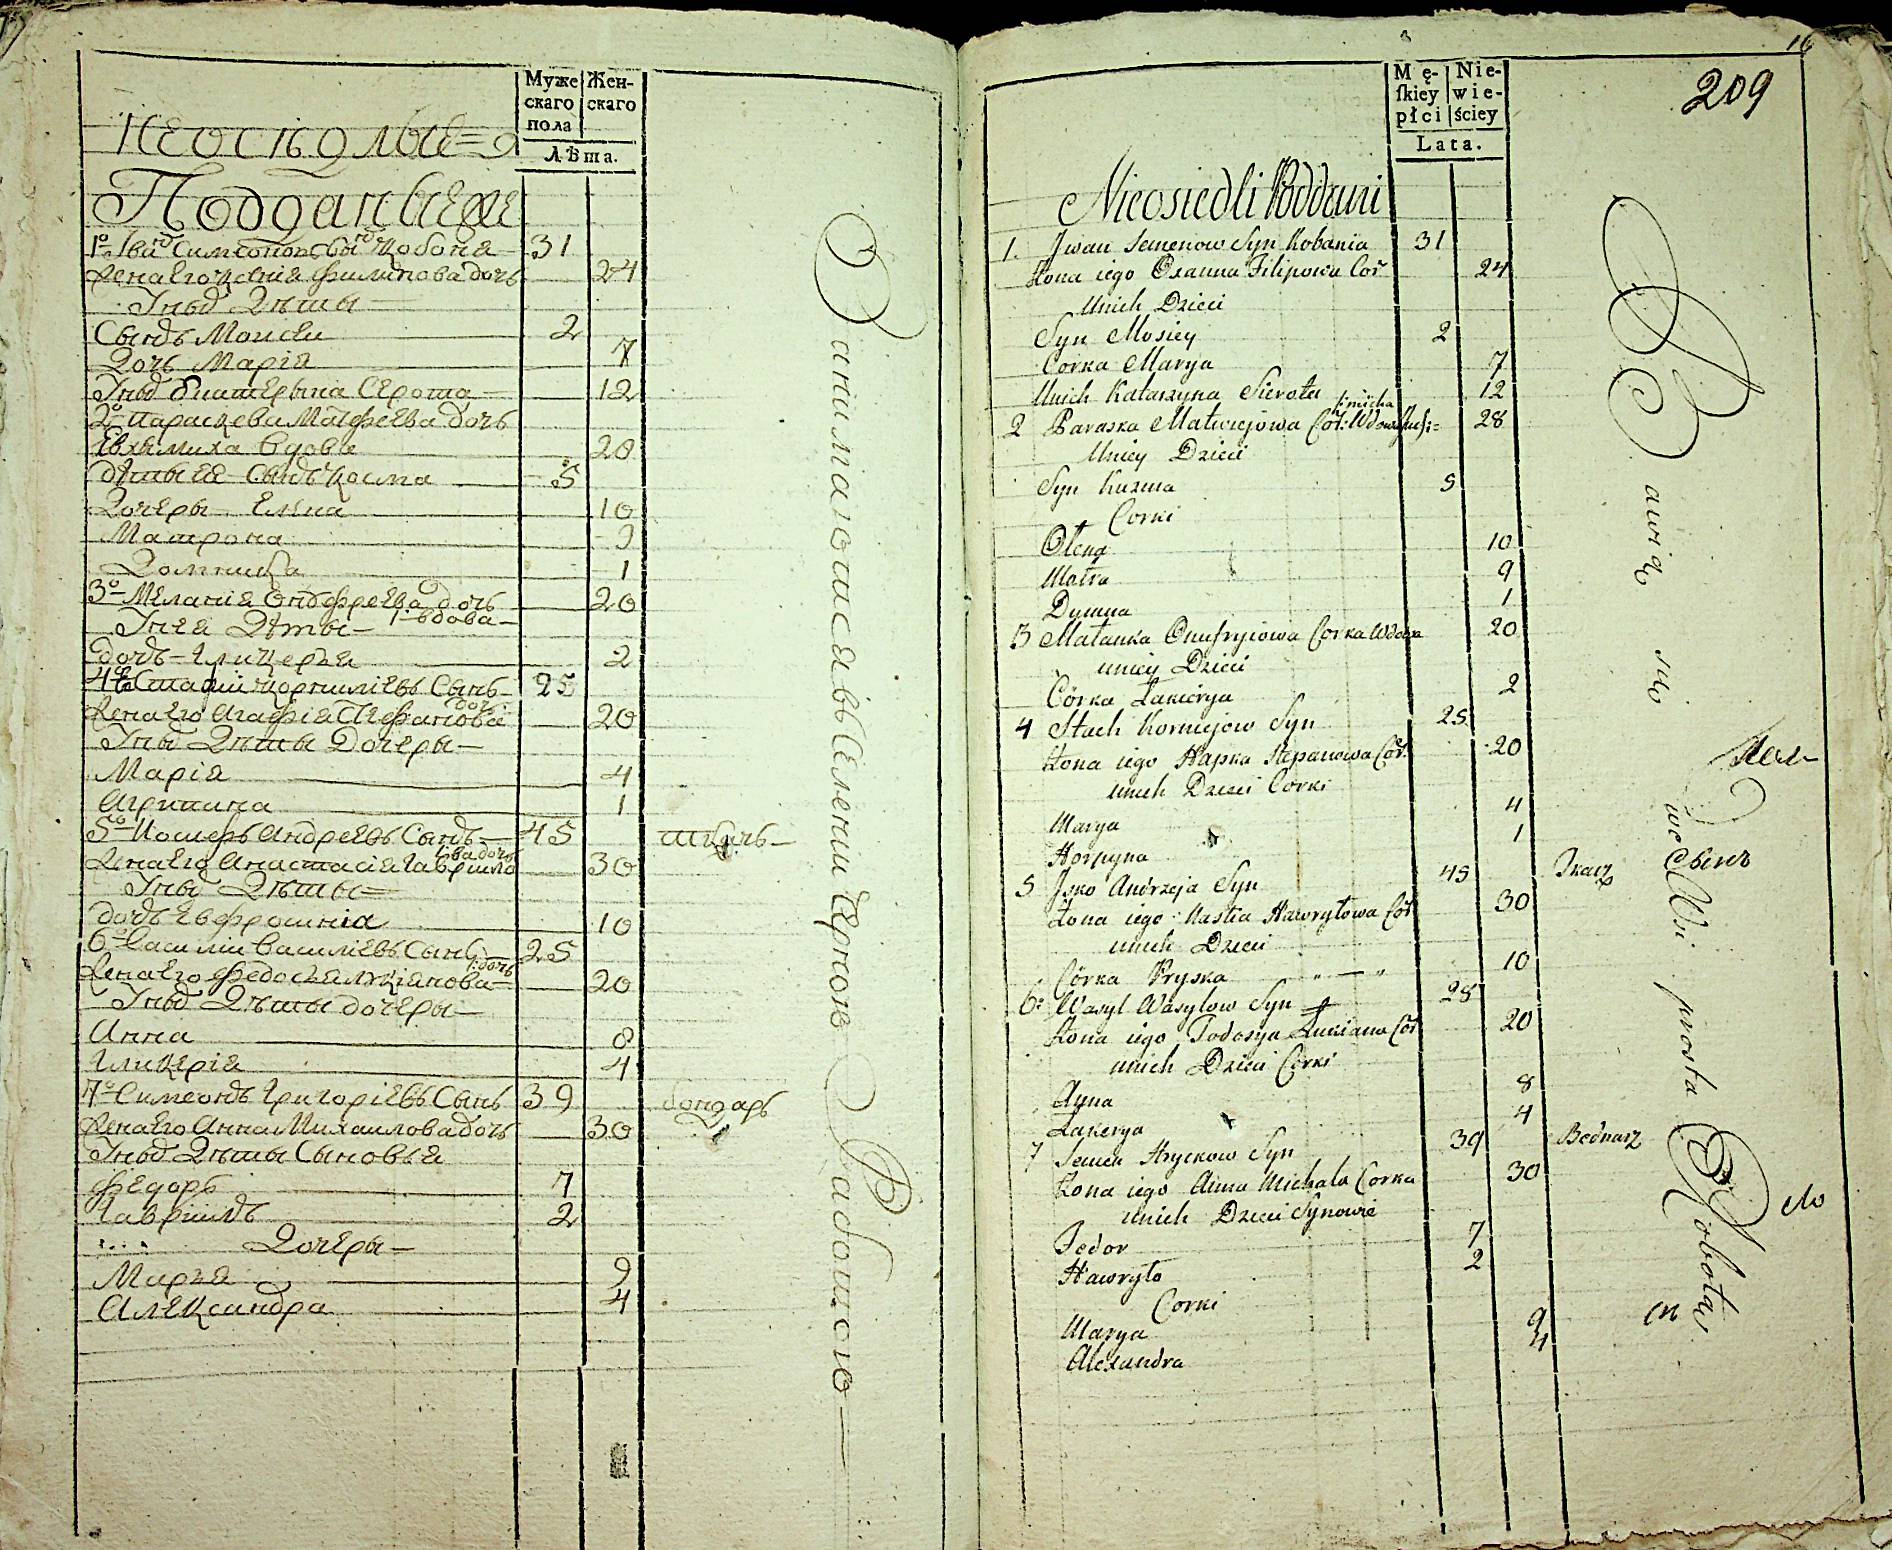 Муже
скаго
пола
Жен-
скаго
Лѣта.
Неосѣдлые
Подданные
1º Иванъ Симеоновъ сынъ Кобаня 31
Жена его Ксенія Филипова дочь 24
У ныхъ Дѣты
Сынъ Моисеи 2
Дочь Марія 7
У ныхъ Екатерына Сърота 12
2º Параскева Матфеева дочь
Евхимиха вдова 28
Дѣты ея сынъ Косма 5
Дочеры Елена 10
Матрона 9
Домникія 1
3º Меланія Онофреева дочь 20
вдова
У нея Дѣты
дочь Гликерія 2
4º Евстафій Корниліевъ сынъ 25
Жена его Агафія Стефанова дочь 20
У ныхъ Дѣты Дочеры
Марія 4
Агрипина 1
5º Іосифъ Андреевъ Сынъ 45 ткачь
Жена его Анастасія Гаврилова дочь 30
У ныхъ Дѣты
дочь Евфросинія 10
6º Василіи Василіевъ Сынъ 25
Жена его Федосья Лукіянова дочь 20
У ныхъ Дѣты дочеры
Анна 8
Гликерія 4
7º Симеонъ Григоріевъ Сынъ 39 бондарь
Жена его Анна Михаилова дочь 30
У ныхъ Дѣты Сыновья
Федоръ 7
Гавріилъ 2
Дочеры
Марья 9
Александра 4
Занимаються въ селеніи черною Работою
16
209
Mę-
ſkiey
płci
Nie-
wie-
ściey
Lata.
Nieosiedli Poddani
1. Jwan Semenow Syn Kobania 31
Żona iego Oxanna Filipowa Cor 24
Unich Dzieci
Syn Mosiey 2
Corka Marya 7
Unich Katarzyna Sierota 12
2 Paraska Matwiejowa Cor: Wdowa Juchimicha 28
Uniey Dzieci
Syn Kuzma 5
Corki
Olena 10
Matra 9
Dumna 1
3 Małanka Onufryiowa Corka Wdowa 20
uniey Dzieci
Córka Łukierya 2
4 Stach Korniejow Syn 25
Żona iego Hapka Stepanowa Cor: 20
unich Dzieci Corki
Marya 4
Horpyna 1
5 Jsko Andrzeja Syn 45 Tkacz
Żona iego Nastia Hawryłowa Cor 30
unich Dzieci
Córka Pryska 10
6: Wasyl Wasylow Syn 25
Żona iego Todosya Łukiana Cor 20
unich Dzieci Corki
Anna 8
Łukerya 4
7 Semen Hryckow Syn 39 Bednarz
Żona iego Anna Michała Corka 30
unich Dzieci Synowie
Fedor 7
Hawryło 2
Corki
Marya 9
Alexandra 4
Bawią się we Wsi prosta Robota
сынъ